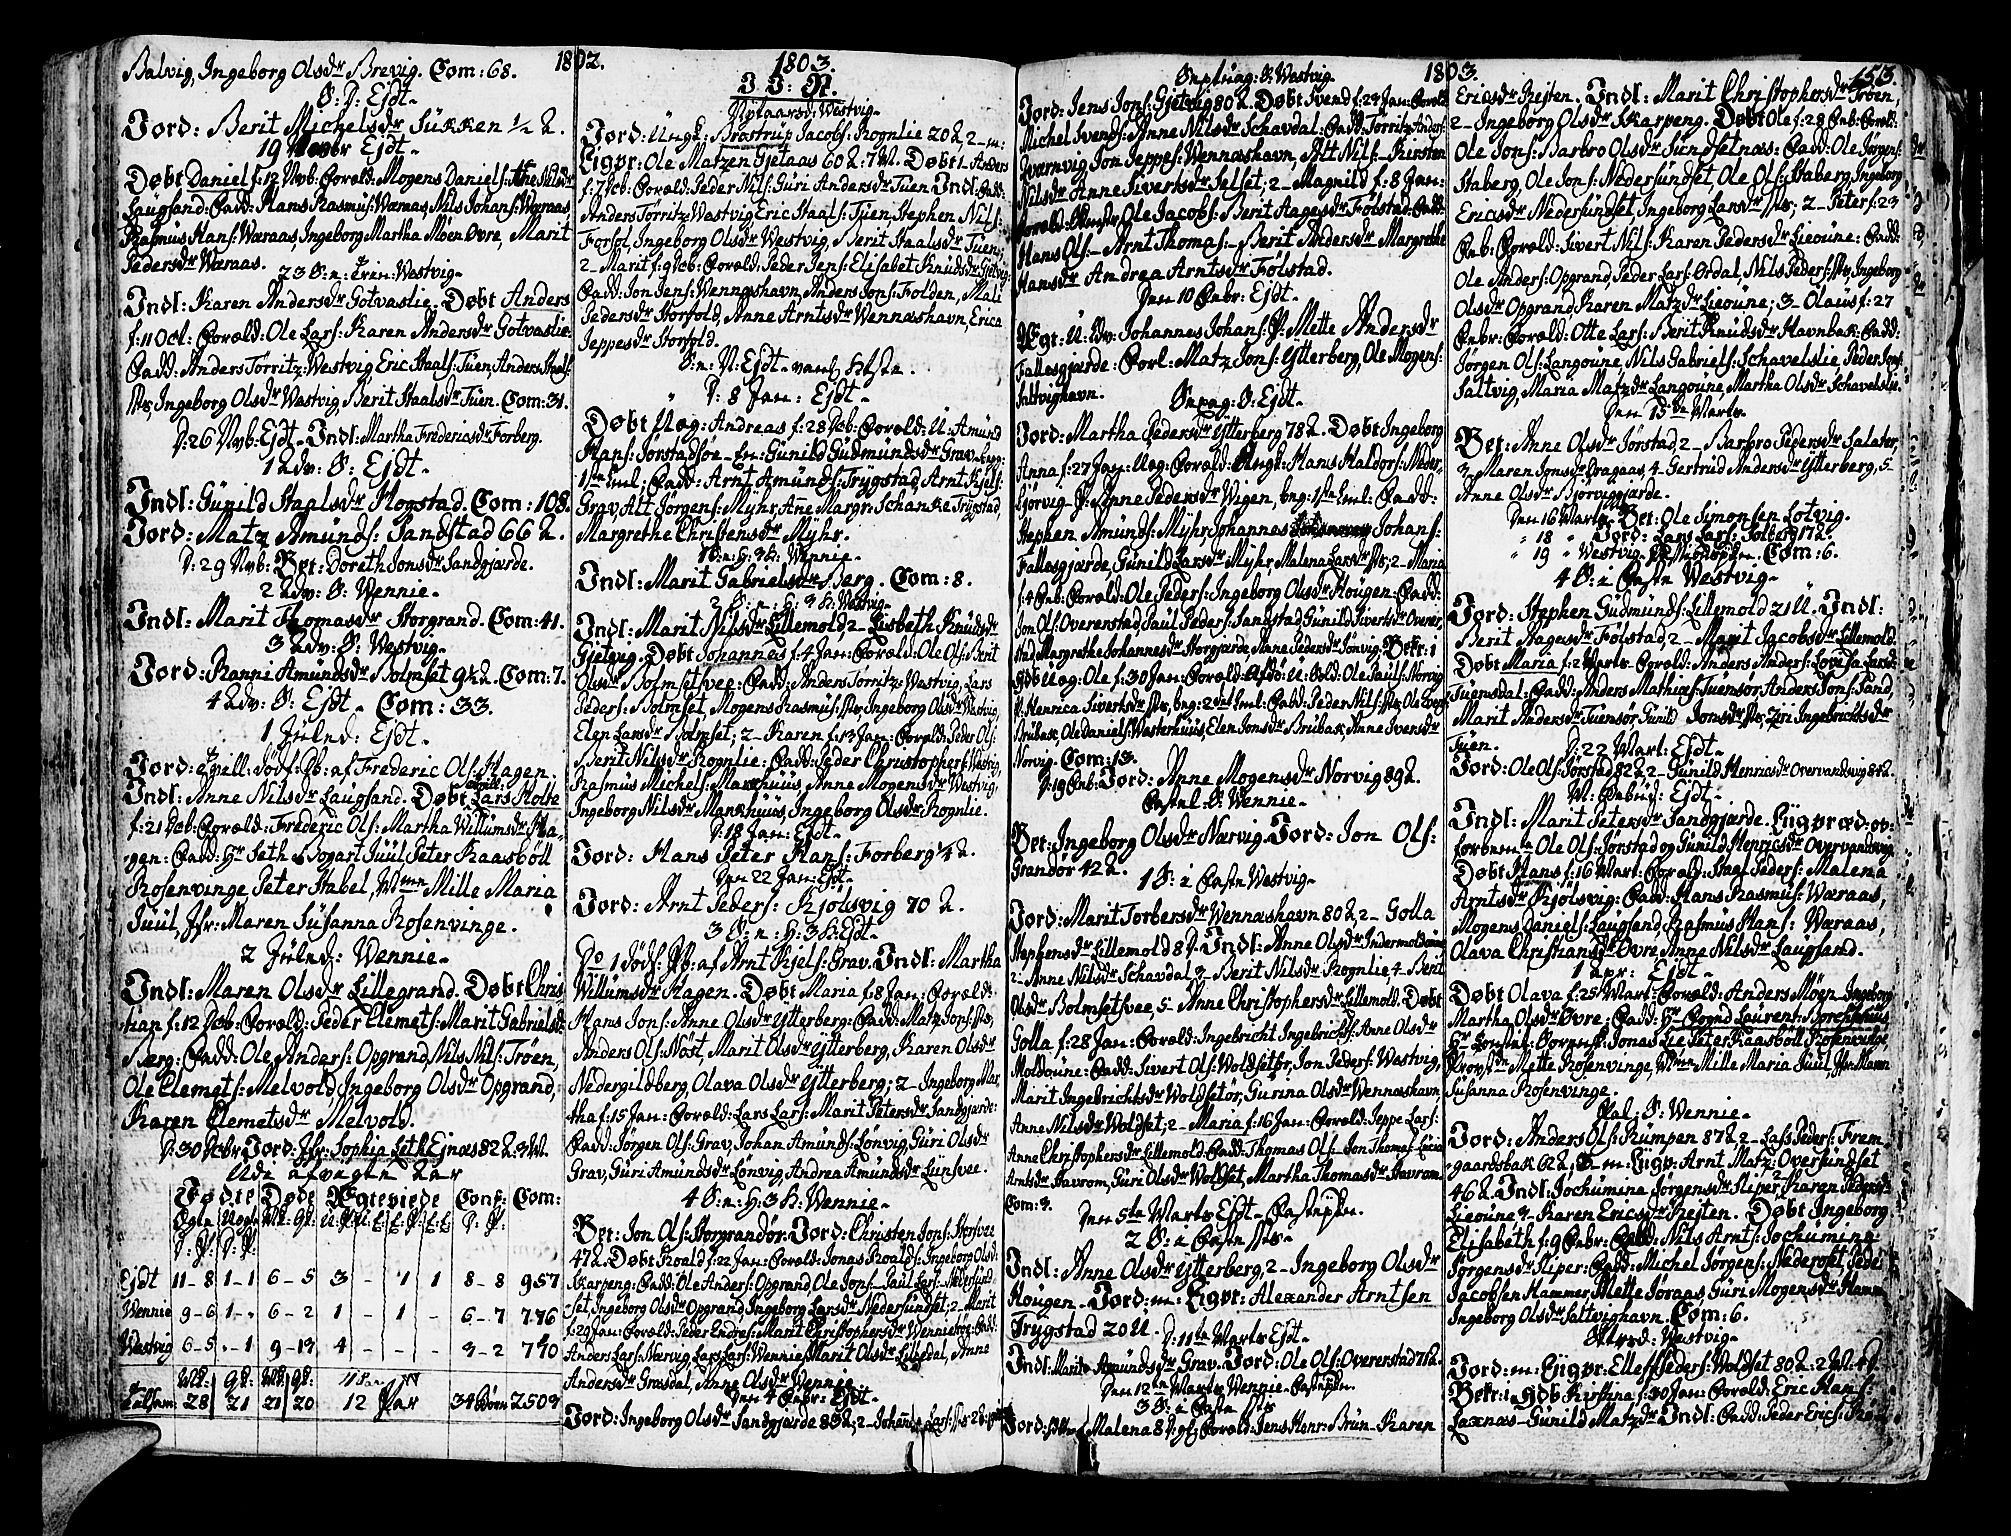 1802.
Balvig, Ingeborg Olsdr Brevig. Com: 68.
S: D: Ejdt-
Jord: Berit Michelsdr Sükken ½ 2.
19 Novbr Ejdt-
Døbt Daniel f: 12 Nvb: Foræld: Mogens Daniels: Ane Nilsdr
Laugsand: Fadd: Hans Rasmus: Wæraas, Nils Johans: Wæraas,
Rasmus Hans: Wæraas, Ingeborg Martha Moen Øvre, Marit
Pedersdr Wæraas.
23 S: n: Trin: Westvig-
Indl: Karen Andersdr Gotvaslie. Døbt Anders
f: 11 Oct: Foræld: Ole Lars: Karen Andersdr Gotvaslie:
Fadd: Anders Törritz: Westvig Eric Staals: Tuen, Anders Staals:
sts, Ingeborg Olsdr Westvig, Berit Staalsdr Tuen. Com: 31.
D: 26 Nvb: Ejdt- Indl: Martha Fredericsdr Forberg.
1 Adv: S: Ejdt-
Indl: Günild Staalsdr Hogstad. Com: 108.
Jord: Matz Amünds: Sandstad 66 2.
D: 29 Nvb: Bet: Doreth Jonsdr Sandgjærde.
2 Adv: S: Wennie-
Indl: Marit Thomasdr Storgrand. Com: 41.
3 Adv: S: Westvig-
Jord: Ranni Amündsdr Bolmset 9½ 2. Com: 7.
4 Adv: S: Ejdt- Com: 33.
1 Juled: Ejdt-
Jord: dødf: Pb: af Frederic Ols: Hagen.
Indl: Anne Nilsdr Laugsand. Døbt Lars Holte
f: 21 Dcb: Foræld: Frederic Ols: Martha Willumsdr Ha-
gen: Fadd: Hr Seth Bogart Juul, Peter Kaasbøll
Rosenvinge, Peter Habel, Mille Maria
Juul, Jfr: Maren Susanna Rosenvinge.
2 Juled: Wennie-
Indl: Maren Olsdr Lillegrand. Døbt Chris-
tian f: 12 Dcb: Foræld: Peder Clemets: Marit Gabrielsdr
Bærg: Fadd: Ole Anders: Opgrand, Nils Nils: Trøen,
Ole Clemets: Melvold, Ingeborg Olsdr Opgrand,
Karen Clemetsdr Melvold.
D: 30 Dcbr Jord: Jfr: Sophia Seth Ejnæs 82 2: 3 M.
Udi afvigte Aar
Födte Døde Egteviede Conf: Com:
Ejdt 11-8 1-1 6-5 3 - 1 1 8-8 957
Wennie 9-6 1-, 6-2 1 - 1 - 6-7 776
Westvig 6-5 ,-1 9-13 4 - - - 3-2 770
28 21 21 20 12 Par 34 Børn 2503
1803.
I: J: N.
Nytaarsd: Westvig-
Jord: Ungk: Brostrup Jacobs: Rognlie 20 2 2- m:
Ligpr: Ole Matzen Gjetaas 60 2: 7 M. Døbt 1. Anders
f: 7 Dcb: Foræld: Peder Nils: Guri Andersdr Tuen Indl: Fadd:
Anders Törritz: Westvig Eric Staals: Tuen, Stephen Nils:
Forfol, Ingeborg Olsdr Westvig, Berit Staalsdr Tuen,
2- Marit f: 9 Dcb: Foræld: Peder Jens: Elisabet Knudsdr Gjetvig:
Fadd: Jon Jens: Wennæshavn, Anders Jons: Folden, Mali
Pedersdr Storfold, Anne Arntsdr Wennæshavn, Erica
Jeppesdr Storfold.
S: n: N: Ejdt-
D: 8 Jan: Ejdt-
Døbt Uæg: Andreas f: 28 Dcb: Foræld: U: Amund
Hans: Jørstadsøe - Gunild Gudmundsdr Grav
Fadd: Arnt Amünds: Trygstad, Arnt Kjels:
Grav, Alt Jørgens: Myhr, Ane Margr: Schanke Trygstad,
Margrethe Christensdr Myhr.
1 S: n: H: 3 K: Wennie-
Indl: Marit Gabrielsdr Berg. Com: 8.
2 S: n: H: 3 K: Westvig-
Indl: Marit Nilsdr Lillemold, 2- Lisbeth Knudsdr
Gjetvig. Døbt Johannes f: 4 Jan: Foræld: Ole Ols: Berit
Olsdr Bolmsetsvee: Fadd: Anders Törritz: Westvig, Lars
Peders: Bolmset, Mogens Rasmus: sts, Ingeborg Olsdr Westvig,
Elen Larsdr Bolmset; 2- Karen f: 13 Jan: Foræld: Peder Ols:
Berit Nilsdr Rognlie: Fadd: Peder Christophers: Westvig,
Rasmus Michels: Markhuus, Anne Mogensdr Westvig,
Ingeborg Nilsdr Markhuus, Ingeborg Olsdr Rognlie.
D: 18 Jan: Ejdt-
Jord: Hans Peter Hans: Forberg ¼ 2.
Den 22 Jan: Ejdt-
Jord: Arnt Peders: Kjølsvig 70 2.
3 S: n: H: 3 K: Ejdt-
Do 1 dødf: Pb: af Arnt Kjels: Grav. Indl: Martha
Willumsdr Hagen. Døbt Maria f: 8 Jan: Foræld:
Hans Jons: Anne Olsdr Ytterberg: Fadd: Matz Jons: sts,
Anders Ols: Nøst, Marit Olsdr Ytterberg, Karen Olsdr
Nedergildberg, Olava Olsdr Ytterberg; 2- Ingeborg Mar-
tha f: 15 Jan: Foræld: Lars Lars: Marit Petersdr Sandgjærde:
Fadd: Jørgen Ols: Grav, Johan Amünds: Lønvig, Guri Olsdr
Grav, Guri Amündsdr Lønvig, Andrea Amündsdr Lünsvee.
4 S: n: H: 3 K: Wennie-
Bet: Jon Ols: Storgrandør. Jord: Christen Jons:
47 2. Døbt Roald f: 22 Jan: Foræld: Jonas Roalds: Ingeborg Olsdr
Skarpeng: Fadd: Ole Anders: Opgrand, Ole Jons- Paul Lars: Nedersund-
set, Ingeborg Olsdr Opgrand, Ingeborg Larsdr Nedersundset; 2- Marit
f: 29 Jan: Foræld: Peder Endres: Marit Christophersdr Wennieb: Fadd:
Anders Lars: Nærvig, Lars Lars: Wennie, Marit Olsdr Liledal, Anne
Andersdr Grøsdal, Anne Olsdr Wennie.
Den 4 Febr: Ejdt-
Jord: Ingeborg Olsdr Sandgjærde 83 2; 2-
1803.
Septuag: S: Westvig-
Jord: Jens Jons: Gjetvig 80 2. Døbt Svend f: 23 Jan: Foræld:
Michel Svends: Anne Nilsdr Schavdal: Fadd: Törritz Anders:
Jon Jeppes: Wennæshavn, Alt Nils- Kirsten
Nilsdr Anne Sivertsdr Selset; 2- Magnild f: 8 Jan:
Ole Jacobs: Berit Aagesdr Følstad: Fadd:
Hans Ols- Arnt Thomas- Berit Andersdr Margrethe
Hansdr Andrea Arntsdr Følstad.
Den 10 Febr: Ejdt-
Egt: U: Johannes Johans: P: Mette Andersdr
Fallesgjærde: Forl: Matz Jons: Ytterberg, Ole Mogens:
Saltvighavn.
Sexag: S: Ejdt-
Jord: Martha Pedersdr Ytterberg 78 2. Døbt Ingeborg
Anna f: 27 Jan: Uæg: Foræld: Ungk: Hans Haldors: Neder-
Anne Pedersdr Wigen, Fadd:
Stephen Amünds: Myhr, Johannes Johans:
Fallesgjærde, Gunild Larsdr Myhr, Malena Larsdr sts; 2- Maria
f: 4 Feb: Foræld: Ole Peders: Ingeborg Olsdr Hougen: Fadd:
Jon Ols: Overenstad, Paul Peders: Sandstad, Gunild Sivertsdr Overen-
stad, Margrethe Johannesdr Storgjærde, Anne Pedersdr Lønvig: Betr: 1
Hdb: Uæg: Ole f: 30 Jan: Foræld: Ole Pauls: Norvig
P: Henrica Sivertsdr sts, Fadd: Peder Nils: sts, Ole
Brubak, Ole Daniels: Westerhuus, Elen Jonsdr Brubak, Anne Svensdr
Norvig. Com: 13.
D: 19 Feb: Jord: Anne Mogensdr Norvig 89 2.
Fastel: S: Wennie-
Bet: Ingeborg Olsdr Nærvig. Jord: Jon Ols:
Grandør 42 2.
1 S: i Faste Westvig-
Jord: Marit Torbersdr Wennæshavn 80 2 2- Golla
Stephensdr Lillemold 8 D: Indl: Anne Olsdr Indermoldøune
2- Anne Nilsdr Schavdal 3- Berit Nilsdr Rognlie 4- Berit
Olsdr Bolmsetsvee, 5- Anne Christophersdr Lillemold. Døbt
Golla f: 28 Jan: Foræld: Ingebricht Ingebrichts: Anne Olsdr
Moldøune: Fadd: Sivert Ols: Woldsetør, Jon Peders: Westvig,
Marit Ingebrichtsdr Woldsetør, Gurina Olsdr Wennæshavn,
Anne Nilsdr Woldset; 2- Maria f: 16 Jan: Foræld: Jeppe Lars:
Anne Christophersdr Lillemold: Fadd: Thomas Ols- Jon Thomas-
Arntsdr Stavrom, Guri Olsdr Woldset, Martha Thomasdr Stavrom.
Com: 3.
Den 5te Marts Ejdt-
2 S: i Faste sts-
Indl: Anne Olsdr Ytterberg, 2- Ingeborg Olsdr
Hougen- Jord: m: Ligpr: Alexander Arntsen
Trygstad 20 U. D: 11te Marts Ejdt-
Indl: Marit Amündsdr Grav. Jord: Ole Ols: Overenstad 71 2.
Den 12te Marts Wennie-
3 S: i Faste sts
Malena 8 D: Foræld: Jens Henr: Brün- Karen
1803.
153.
Ericsdr Rejten. Indl: Marit Christophersdr Trøen,
2- Ingeborg Olsdr Skarpeng. Døbt Ole f: 28 Feb: Foræld:
Ole Jons: Barbro Olsdr Sundsetnæs: Fadd: Ole Jørgens:
Staberg, Ole Jons: Nedersundset Ole Ols: Staberg, Ingeborg
Ericsdr Nedersundset, Ingeborg Larsdr sts; 2- Peter f: 23
Feb: Foræld: Sivert Nils: Karen Pedersdr Lieøune: Fadd:
Ole Anders: Opgrand, Peder Lars: Ørdal, Nils Peders: sts, Ingeborg
Olsdr Opgrand, Karen Matzdr Lieøune; 3- Olaus f: 27
Febr: Foræld: Otte Lars: Berit Knudsdr Havnbak: Fadd:
Jørgen Ols: Langøune, Nils Gabriels: Schavelslie, Peder Jons:
Saltvig, Maria Matzdr Langøune, Martha Olsdr Schavelslie.
Den 15de Marts.
Bet: Anne Olsdr Jørstad, 2- Barbro Pedersdr Salater,
3- Maren Jonsdr Dragaas, 4- Gertrud Andersdr Ytterberg, 5-
Anne Olsdr Bjørviggjærde.
Den 16 Marts Bet: Ole Simonsen Lotvig.
" 18 " Jord: Lars Lars: Solberg 12.
" 19 " Westvig- Com: 6.
4 S: i Faste Westvig-
Jord: Stephen Gudmunds: Lillemold 21 U. Indl:
Berit Aagesdr Følstad, 2- Marit Jacobsdr Lillemold.
Døbt Maria f: 2 Marts- Foræld: Anders Anders: Lovisa Larsdr
Tuensdal: Fadd: Anders Mathias: Tuensør, Anders Jons: Sand,
Marit Andersdr Tuensør, Gunild Jonsdr sts, Ingebrichtsdr
Tuen.
D: 22 Mart: Ejdt-
Jord: Ole Ols: Jørstad 82 2 2- Gunild Henricsdr Overvandsvig 84 2.
M: Bebud: Ejdt-
Indl: Marit Petersdr Sandgjærde. Liigpræd: ov:
forbenm: Ole Ols: Jørstad og Gunild Henricsdr Overvandsvig.
Døbt Hans f: 16 Mart: Foræld: Staal Peders: Malena
Arntsdr Kjølsvig: Fadd: Hans Rasmus: Wæraas,
Mogens Daniels: Laugsand, Rasmus Hans: Wæraas,
Olava Christiansdr Øvre, Anne Nilsdr Laugsand.
1 Apr: Ejdt-
Døbt Olava f: 25 Mart: Foræld: Anders Moen, Ingeborg
Martha Olsdr Øvre: Fadd: Hr Laurent:
Jonas Lie Peter Kaasbøll Rosenvinge,
Mette Rosenvinge, Mille Maria Juul, Jfr: Maren
Susanna Rosenvinge.
Pal: S: Wennie-
Jord: Anders Ols: Rumpen 87 2, 2- Lars Peders: Frem-
gaardsbak 62 2, 3- m: Ligpr: Arnt Matz: Oversundset
46 2. Indl: Jochumina Jørgensdr Riper, Karen Pedersdr
Lieøune 3- Karen Ericsdr Rejten. Døbt Ingeborg
Elisabeth f: 9 Febr: Foræld: Nils Arnts: Jochumina
Jørgensdr Riper: Fadd: Michel Jørgens: Nederset, Peder
Jacobsen Hammer, Mette Joraas, Guri Mogensdr Hamm
Ingeborg Olsdr Saltvighavn. Com: 6.
Skersd: Westvig-
Jord: m: Ligpr: Ellef Peders: Woldset 80 2 2 M:
Betr: 1 Hdb: Kirstina f: 30 Jan: Foræld: Eric Hans:
Laxnæs- Gunild Matzdr Indl: Fadd: Peder Erics: